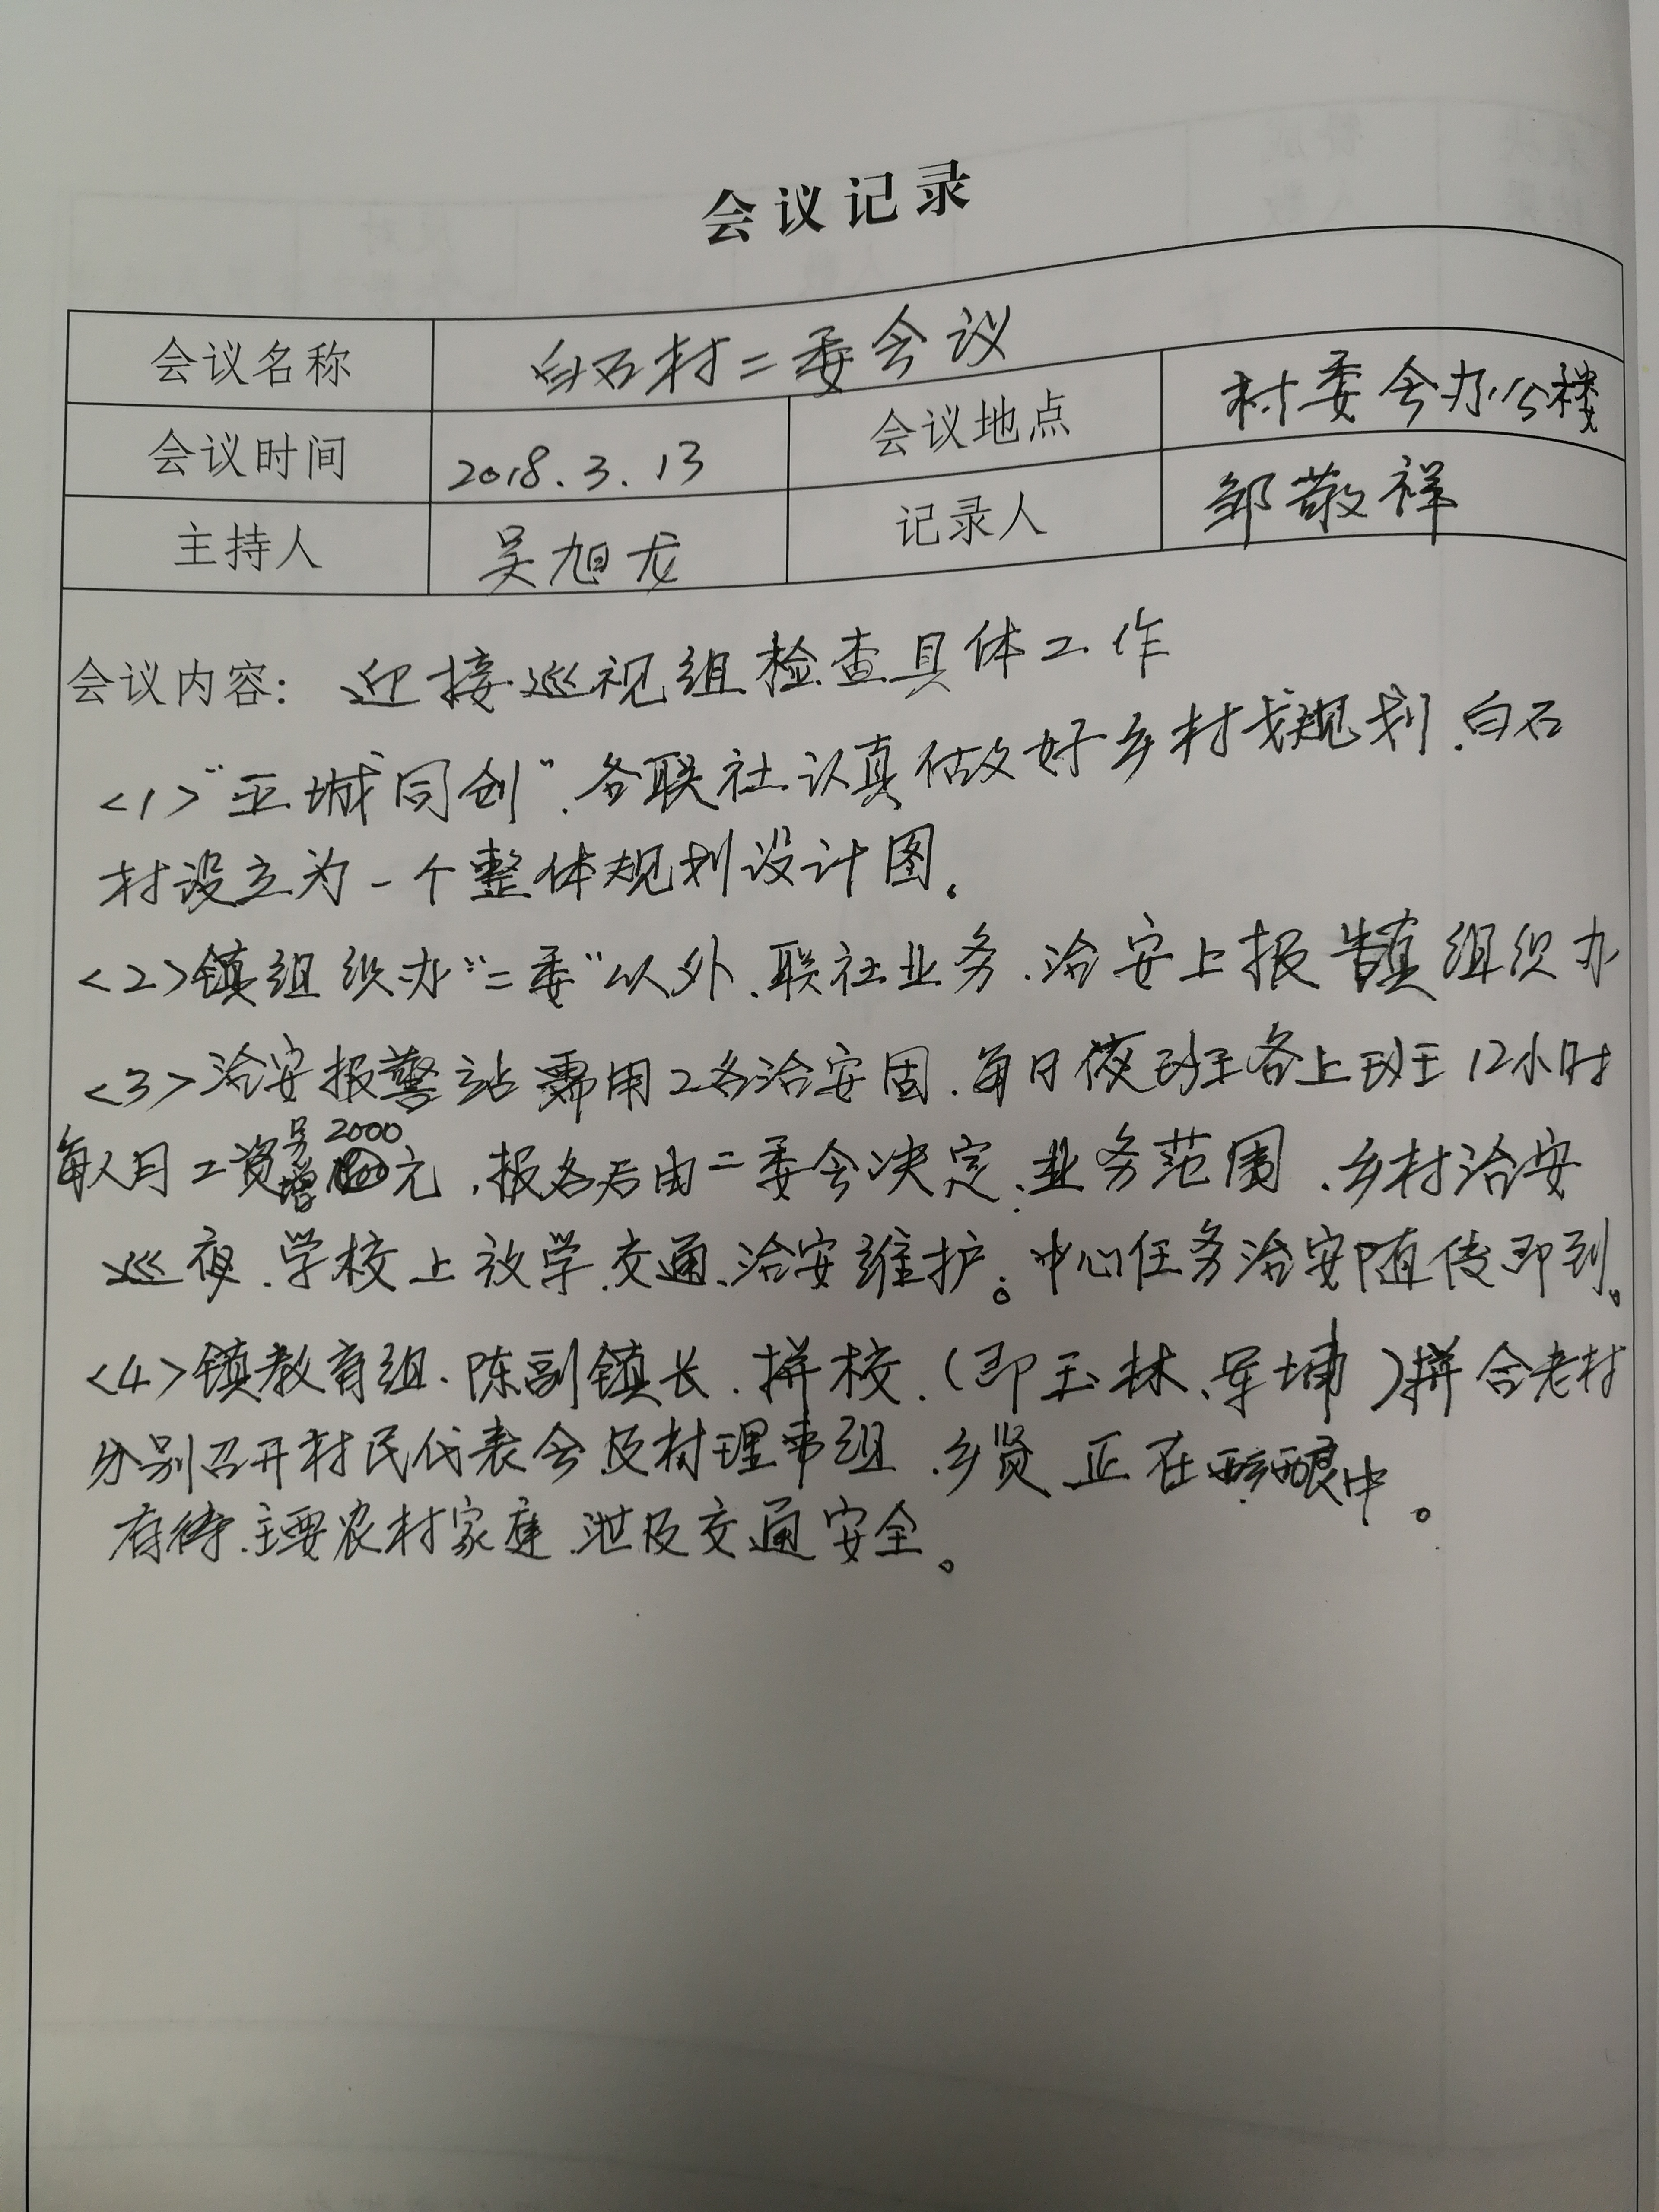 会议记录
会议名称 白石村二委会议
会议时间 2018.3.13 会议地点 村委会办公楼
主持人 吴旭龙 记录人 邹敬祥
会议内容：迎接巡视组检查具体工作
<1>"五城同创"、各联社认真做好乡村规划、白石
村设立为一个整体规划设计图。
<2>镇组织办"二委"以外、联社业务、治安上报镇组织办
<3>治安报警站需用2名治安固、每日夜班各上班12小时
每人月工资2000元、报名后由二委会决定、业务范围、乡村治安
巡夜、学校上放学、交通、治安维护。中心任务治安随传即到。
<4>镇教育组、陈副镇长、拼校、(即玉林、军埔)拼合老村
分别召开村民代表会及村理事组、乡贤正在酝酿中。
存待、主要农村家庭、涉及交通安全。